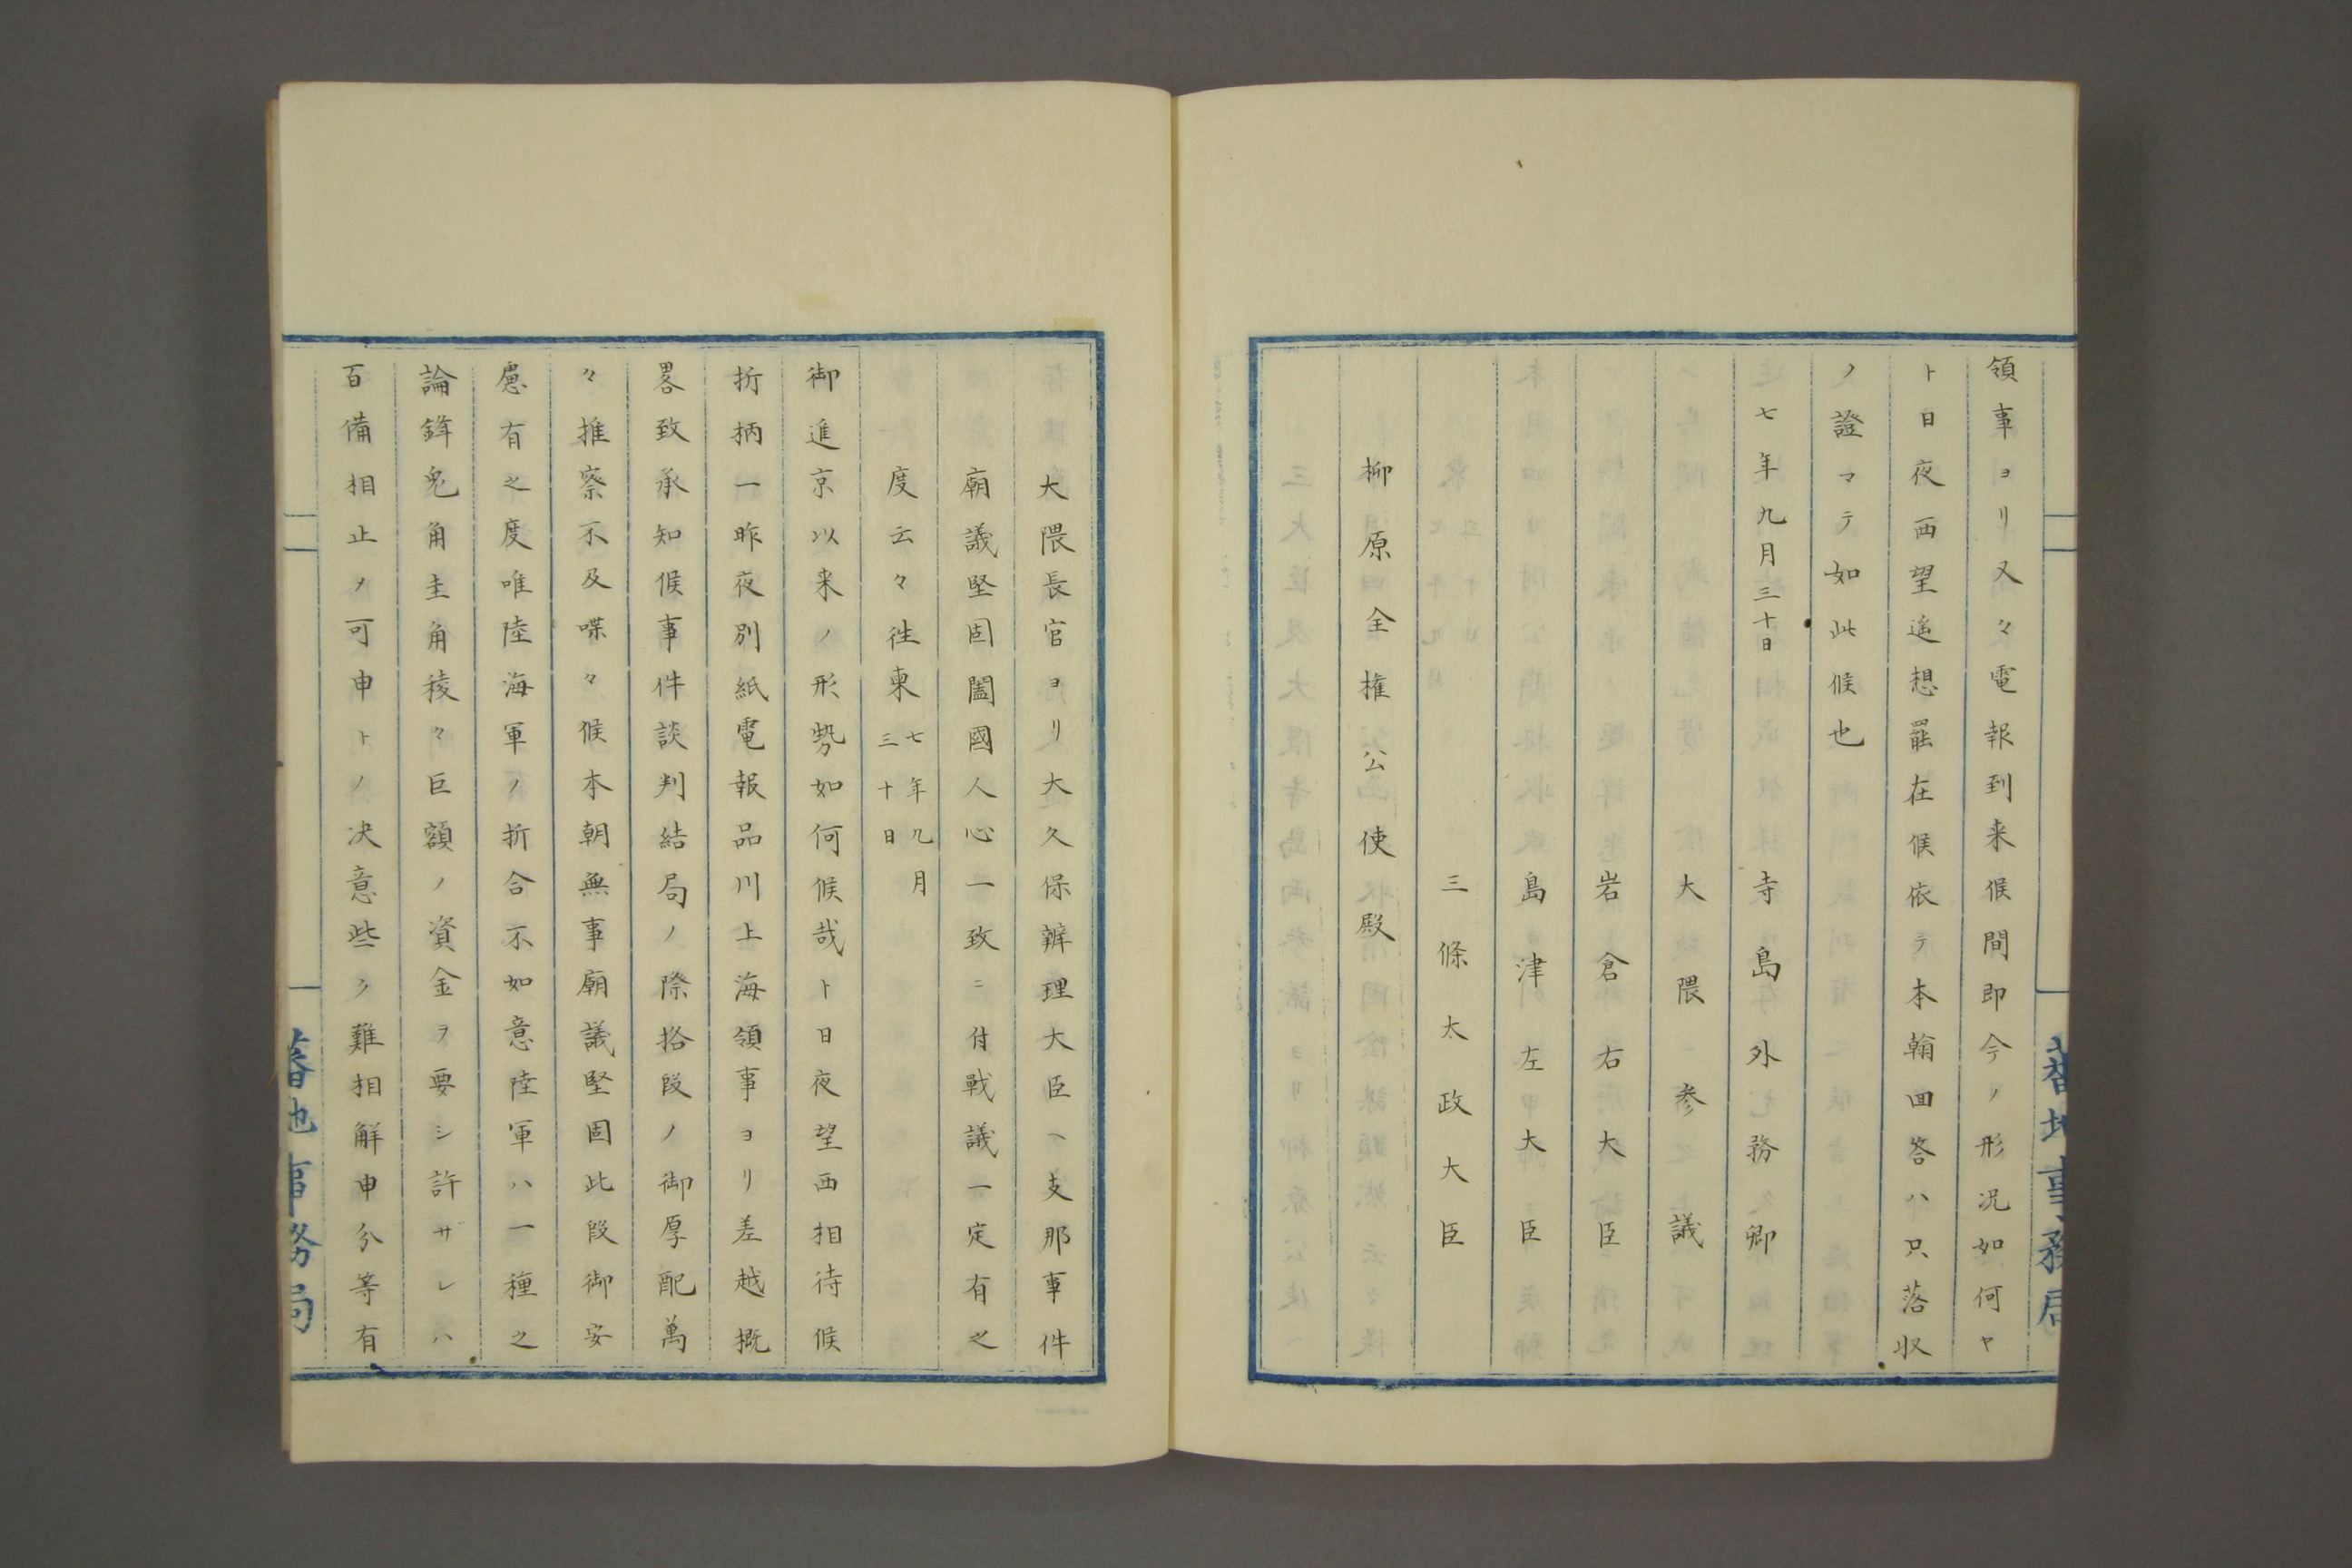 領事ヨリ又々電報到来候間即今ノ形況如何ヤ
ト日夜西望遥想罷在候依テ本翰回答ハ只落収
ノ證マテ如此候也
七年九月三十日　寺島外務卿
大隈参議
岩倉右大臣
島津左大臣
三條太政大臣
柳原全権公使殿
蕃地事務局
大隈長官ヨリ大久保辨理大臣ヘ支那事件
廟議堅固闔國人心一致ニ付戰議一定有之
度云々往東 七年九月三十日
御進京以来ノ形勢如何候哉ト日夜望西相待候
折柄一昨夜別紙電報品川上海領事ヨリ差越概
畧致承知候事件談判結局ノ際拾段ノ御厚配萬
々推察不及喋々候本朝無事廟議堅固此段御安
慮有之度唯陸海軍ノ折合不如意陸軍ハ一種之
論鋒兎角圭角稜々巨額ノ資金ヲ要シ許ザレハ
百備相止ノ可申トノ决意些ク難相解申分等有
蕃地事務局